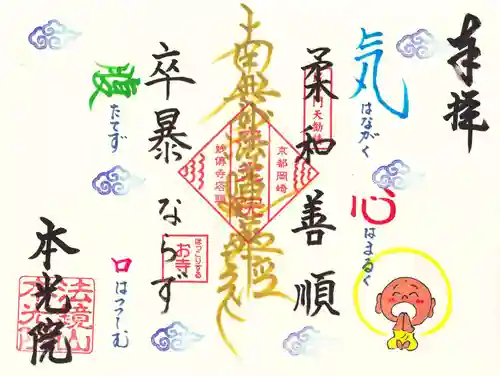 奉拝
気はながく
心はまるく
柔和善順
南無妙法蓮華経
京都岡崎
卒暴ならず
ほっこりする
お寺
腹たてず
口はつつしむ
本光院
法鏡山
本光院